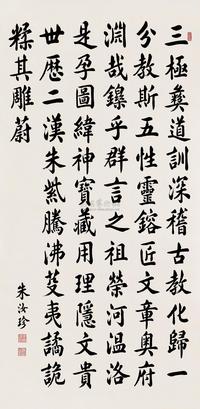 三極彝道訓深稽古教化歸一
分教斯五性靈鎔匠文章奧府
淵哉鑠乎群言之祖榮河温洛
是孕圖緯神寶藏用理隱文貴
世歴二漢朱紫騰沸芟夷譎詭
糅其雕蔚
朱汝珍